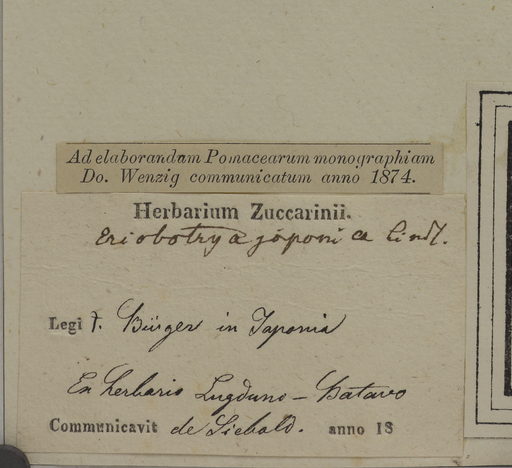 Ad elaborandam Pomacearum monographiam
Do. Wenzig communicatum anno 1874.
Herbarium Zuccarinii.
Eriobotrya japonica Lindl.
Legi t. Bürger in Japonia
Ex herbario Lugduno-Batavo
Communicavit de Siebold. anno 18